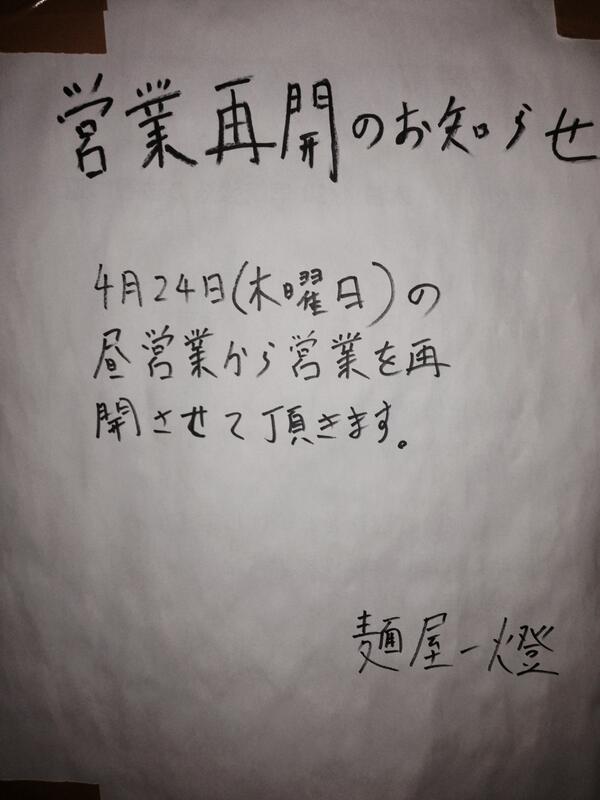 営業再開のお知らせ
4月24日(木曜日)の
昼営業から営業を再
開させて頂きます。
麺屋一燈